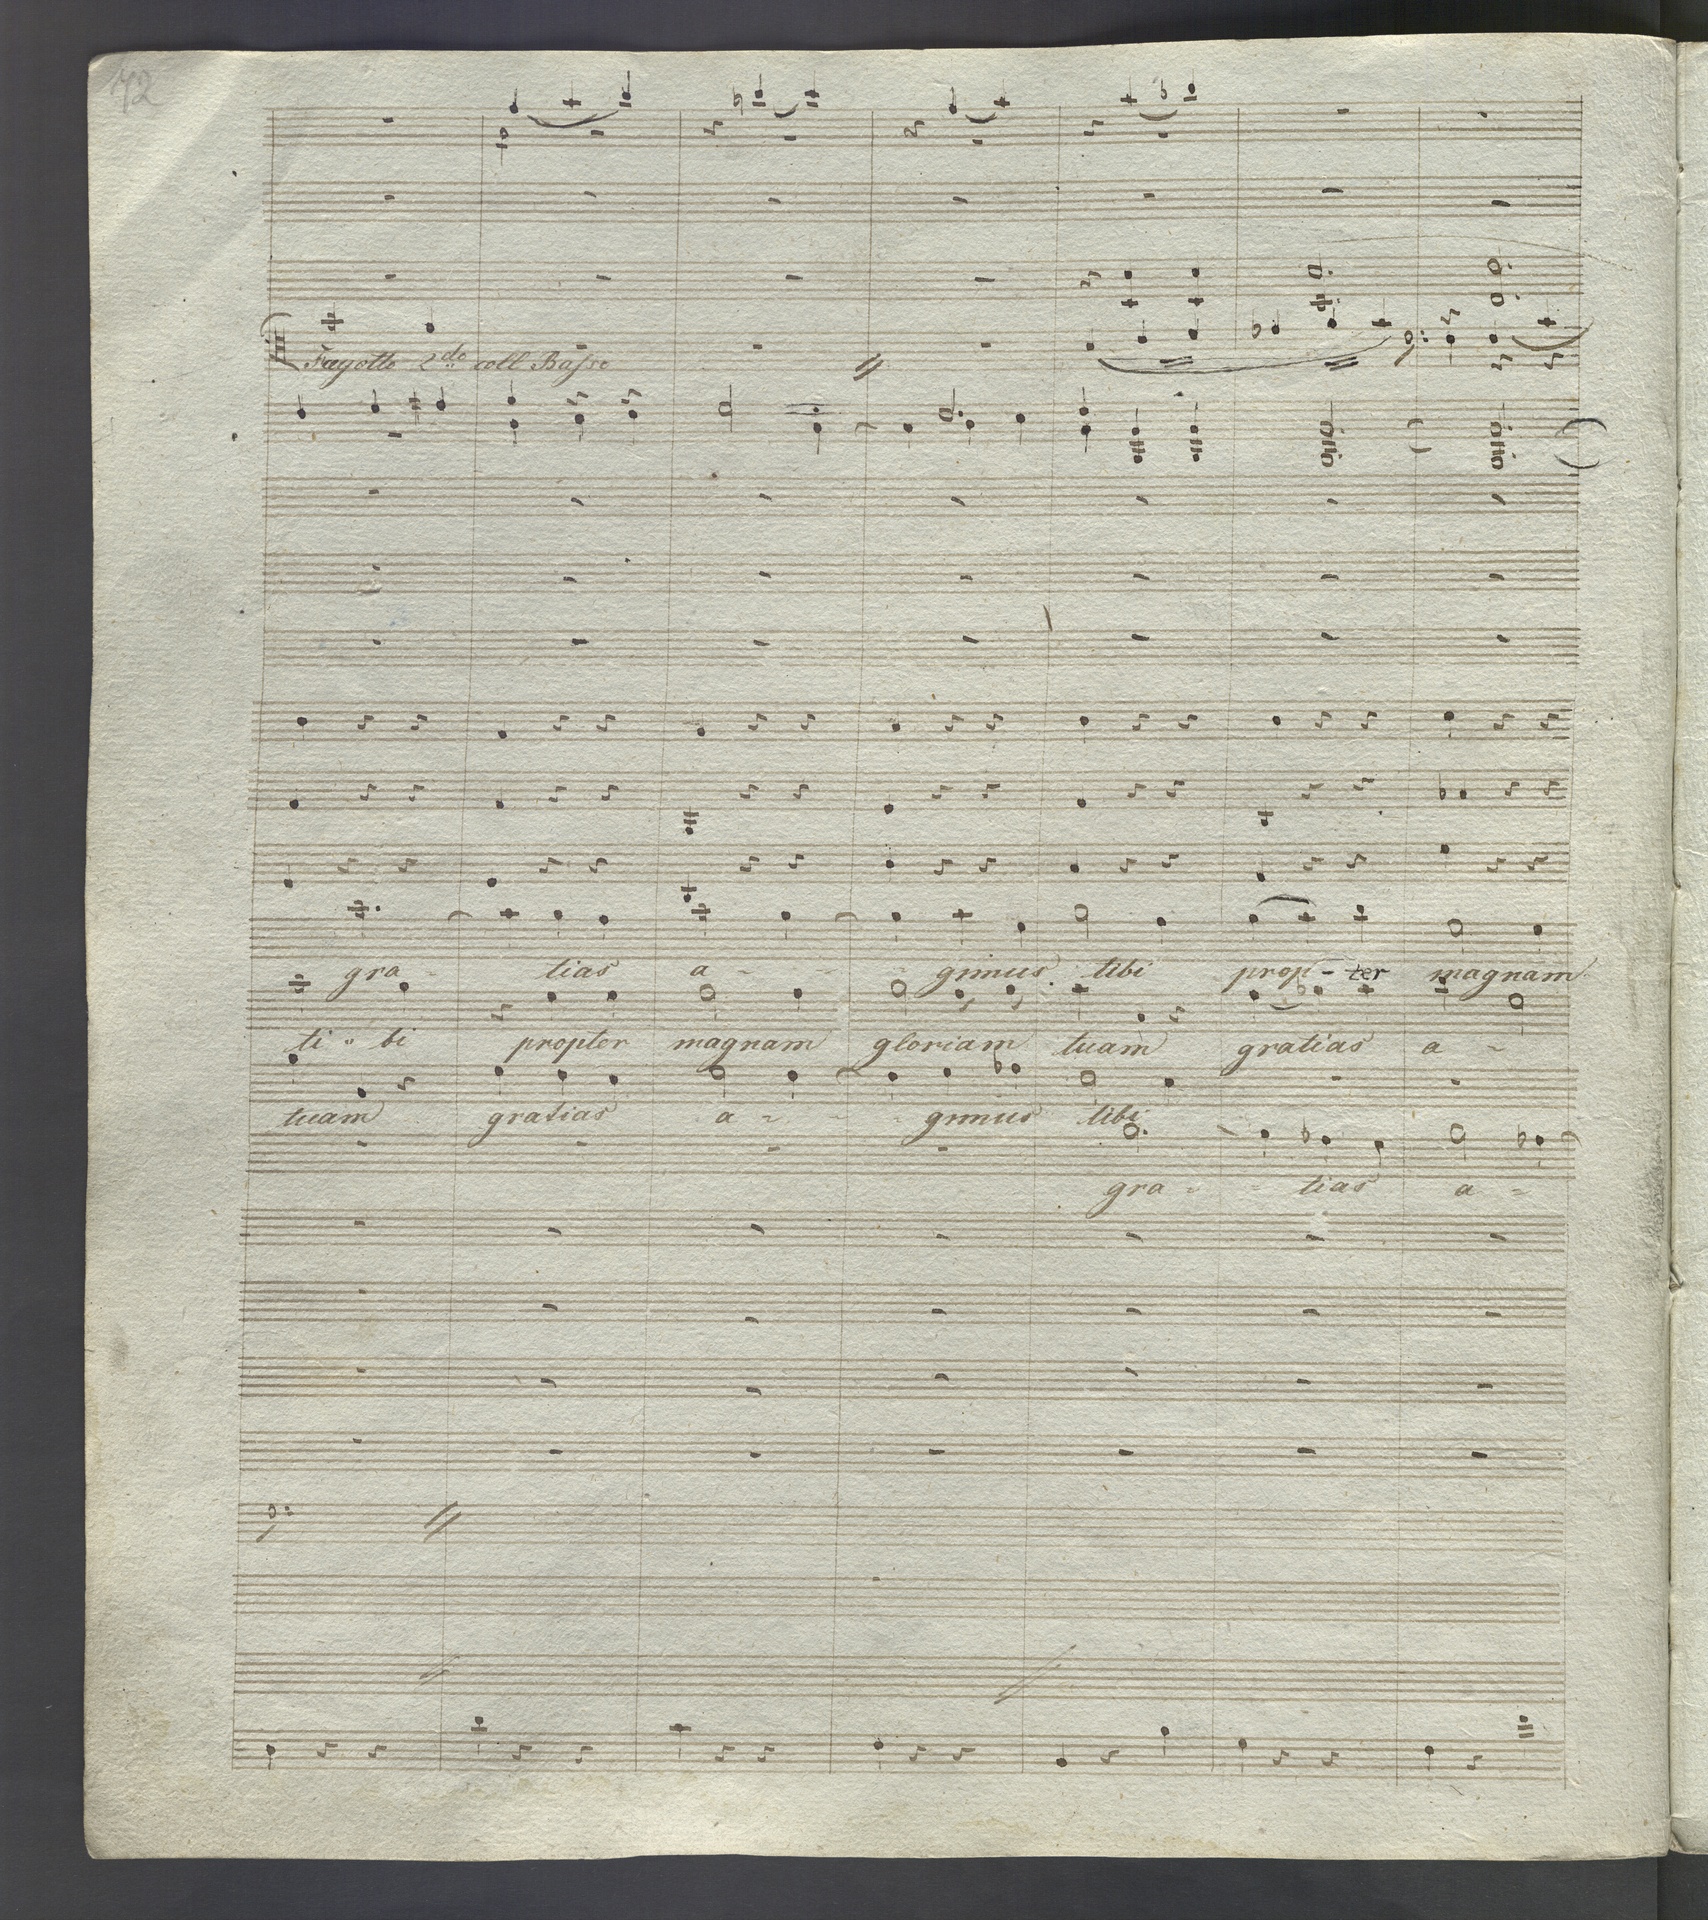 72
Fagotto 2do coll Basso
gra - tias a - - gimus tibi prop - ter magnam
ti - bi propter magnam gloriam tuam gratias a -
tuam gratias a - - gimus tibi
gra - - tias a -